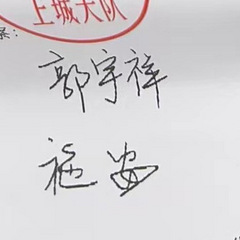 上城大队
案：
郭宇祥
施安